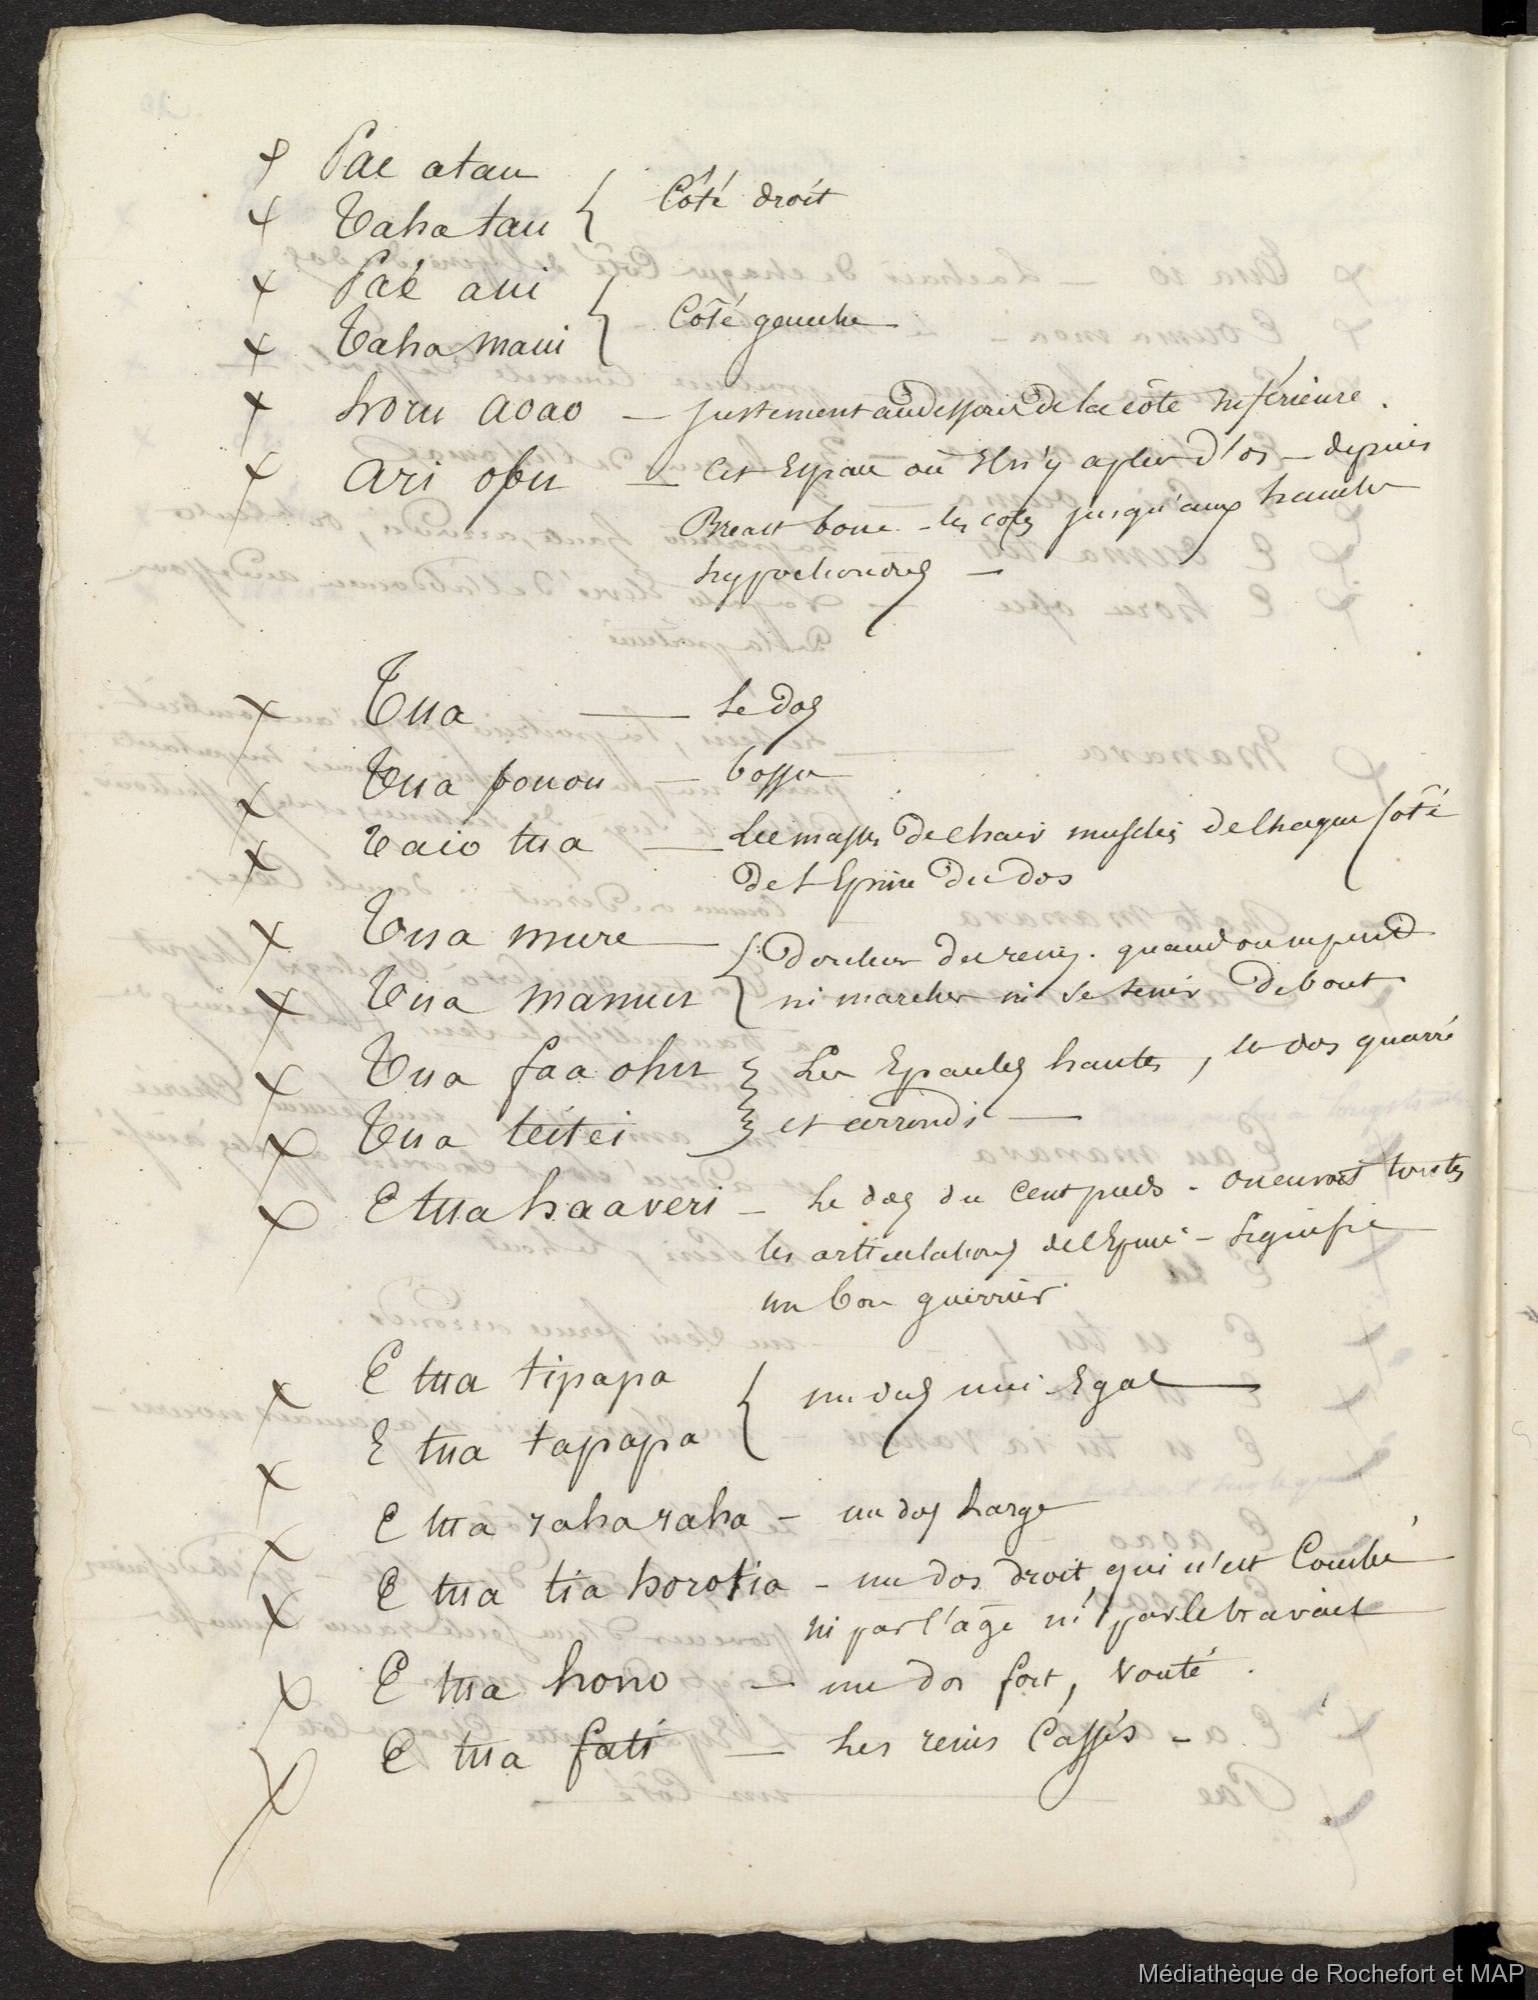 Pae atau
Taha tau { Côté droit
Paé aui
Taha maui } Côté gauche
horu aoao — justement audessous de la côte inférieure.
Ari opu — cet Espace où il n'y a plus d'os — depuis
Breast bone — les cotes jusqu'aux hanches
hypochondres —
Tua — Le Dos
Tua pouou — bossu
Taio tua — Les masses De chair muscles de Chaque Côté
De l'Epine Du dos
Tua mure —
Tua manuu { Douleur des reins. quand on ne peut
ni marcher ni se tenir Debout
Tua faa ohu } Les Epaules hautes, le dos quarré
Tua teitei } et arrondi —
E tua haaveri — Le dos du Cent pieds - on en voit toutes
les articulations de l'Epine — Signifie
un bon guerrier
E tua tipapa
E tua tapapa { un dos uni Egal —
E tua raharaha — un dos Large
E tua tia horotia — un dos droit qui n'est Courbé
ni par l'âge ni par le travail
E tua hono — un dos fort, Vouté.
E tua fati — Les reins Cassés —
Médiathèque de Rochefort et MAP